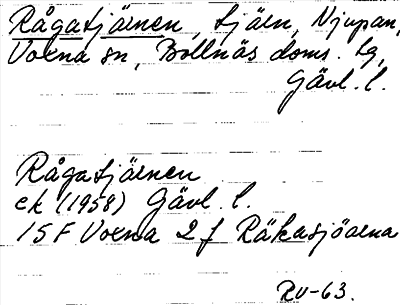 Rågatjärnen, tjärn, Njupan,
Voxna sn, Bollnäs doms. tg,
Gävl. l.
Rågatjärnen
ek (1958) Gävl. l.
15F Voxna 2 f Räkasjöarna
RV-63.